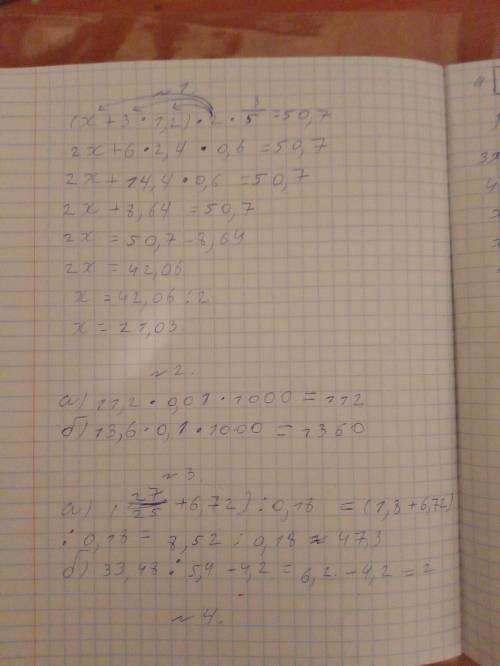 № 1.
(x + 3 · 1,2) · 2 · 3/5 = 50,7
2x + 6 · 2,4 · 0,6 = 50,7
2x + 14,4 · 0,6 = 50,7
2x + 8,64 = 50,7
2x = 50,7 - 8,64
2x = 42,06
x = 42,06 : 2
x = 21,03
№ 2.
а) 11,2 · 0,01 · 1000 = 112
б) 13,6 · 0,1 · 1000 = 1360
№ 3.
а) (27/25 + 6,72) : 0,18 = (1,8 + 6,72)
: 0,18 = 8,52 : 0,18 ≈ 47,3
б) 33,48 : 5,4 - 4,2 = 6,2 - 4,2 = 2
№ 4.
3x